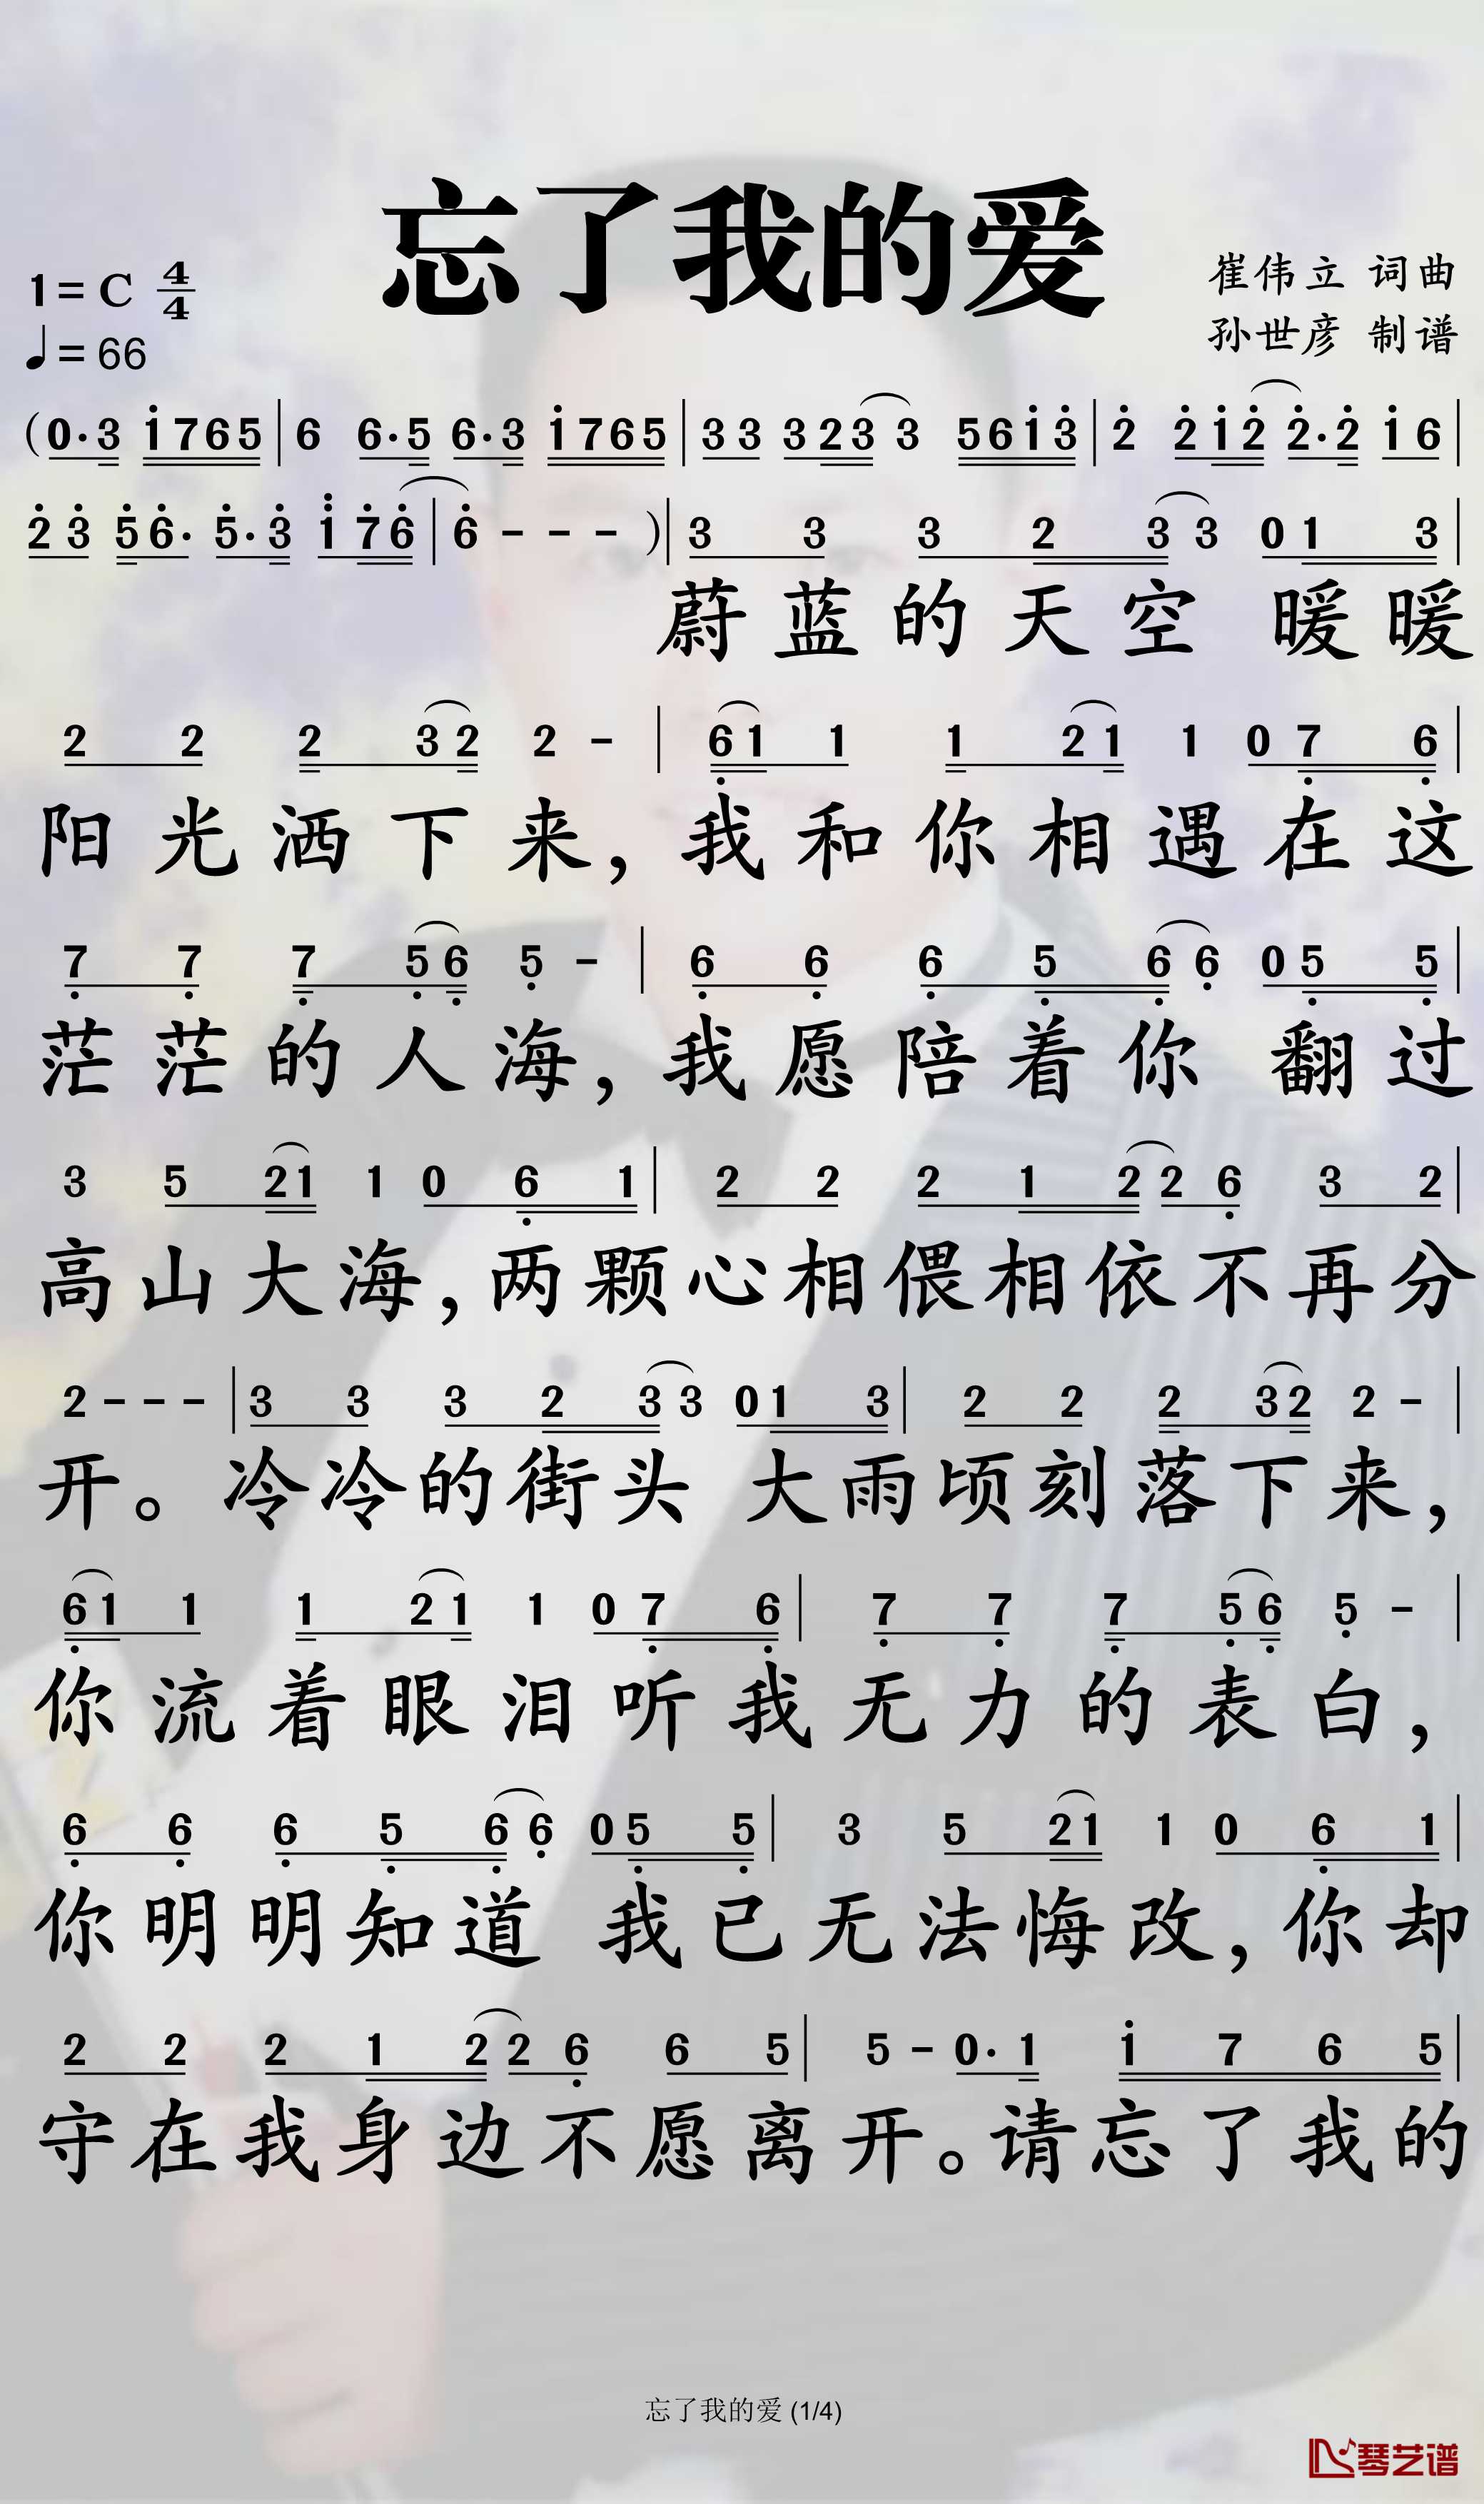 忘了我的爱
1=C 4/4
崔伟立 词曲
♩=66
孙世彦 制谱
(0·3 i765|6 6·5 6·3 i765|33 323 3 56i3|2 2i2 2·2 i6|
23 56· 5·3 i76|6 - - -)|3 3 3 2 3 3 0 1 3|
蔚蓝的天空 暖暖
2 2 2 32 2 -|61 1 1 21 1 0 7 6|
阳光洒下来,我和你相遇在这
7 7 7 56 5 -|6 6 6 5 6 6 0 5 5|
茫茫的人海,我愿陪着你 翻过
3 5 21 1 0 6 1|2 2 2 1 2 2 6 3 2|
高山大海,两颗心相偎相依不再分
2 - - -|3 3 3 2 3 3 0 1 3|2 2 2 32 2 -|
开。冷冷的街头 大雨顷刻落下来,
61 1 1 21 1 0 7 6|7 7 7 56 5 -|
你流着眼泪听我无力的表白,
6 6 6 5 6 6 0 5 5|3 5 21 1 0 6 1|
你明明知道 我已无法悔改,你却
2 2 2 1 2 2 6 6 5|5 - 0·1 i 7 6 5|
守在我身边不愿离开。请忘了我的
忘了我的爱 (1/4)
琴艺谱